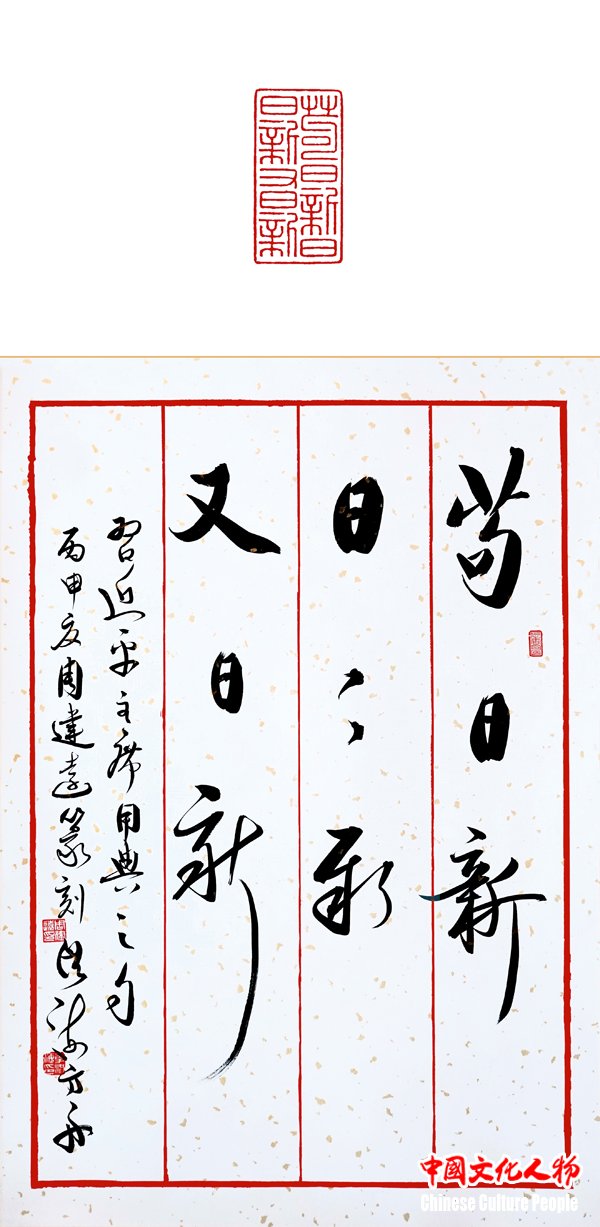 苟日新日
日新又日新
苟日新
日〻新
又日新
習近平主席用典之句
丙申夏周建遠篆刻
中國文化人物
Chinese Culture People